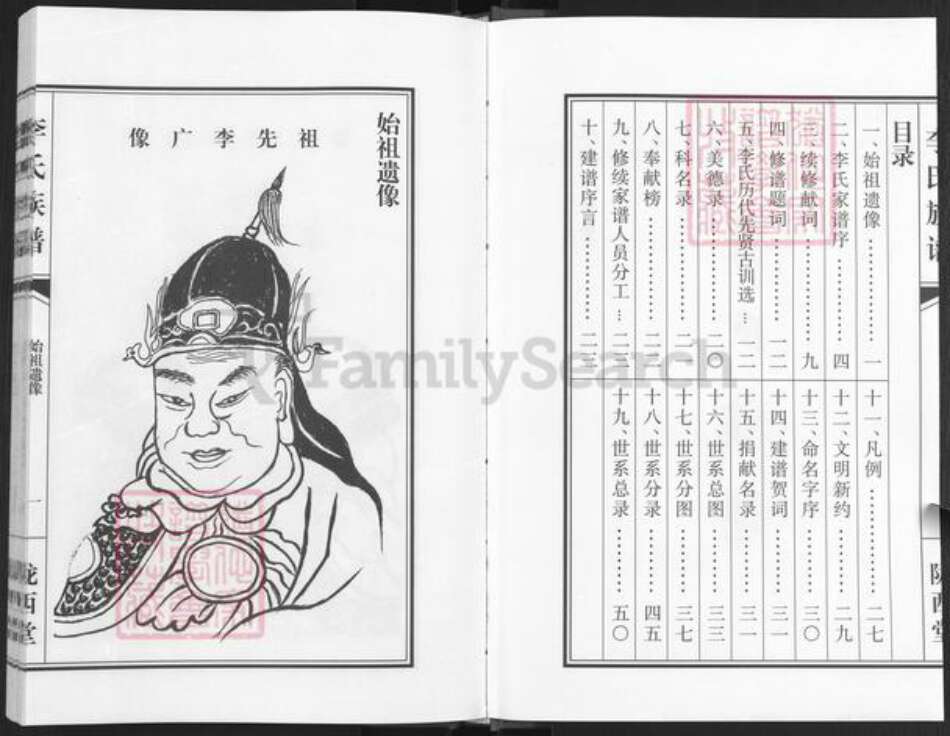 李氏族谱
目录
一、始祖遗像…………一
二、李氏家谱序…………四
三、续修献词…………九
四、修谱题词…………一二
五、李氏历代先贤古训选…一二
六、美德录…………二〇
七、科名录…………二一
八、奉献榜…………二二
九、修续家谱人员分工…二三
十、建谱序言…………二三
十一、凡例…………二七
十二、文明新约…………二九
十三、命名字序…………三〇
十四、建谱贺词…………三一
十五、捐献名录…………三一
十六、世系总图…………三三
十七、世系分图…………三七
十八、世系分录…………四五
十九、世系总录…………五〇
陇西堂
始祖遗像
祖先李广像
李氏族谱
始祖遗像
一
陇西堂
FamilySearch